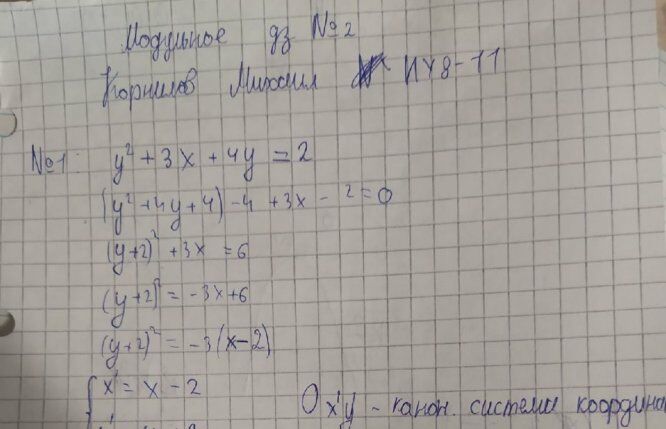 Модульное дз №2
Корнилов Михаил ИУ8-11
№1: y² + 3x + 4y = 2
(y² + 4y + 4) - 4 + 3x - 2 = 0
(y+2)² + 3x = 6
(y+2)² = -3x+6
(y+2)² = -3(x-2)
{ x' = x - 2
Ox'y' - канон. система координа